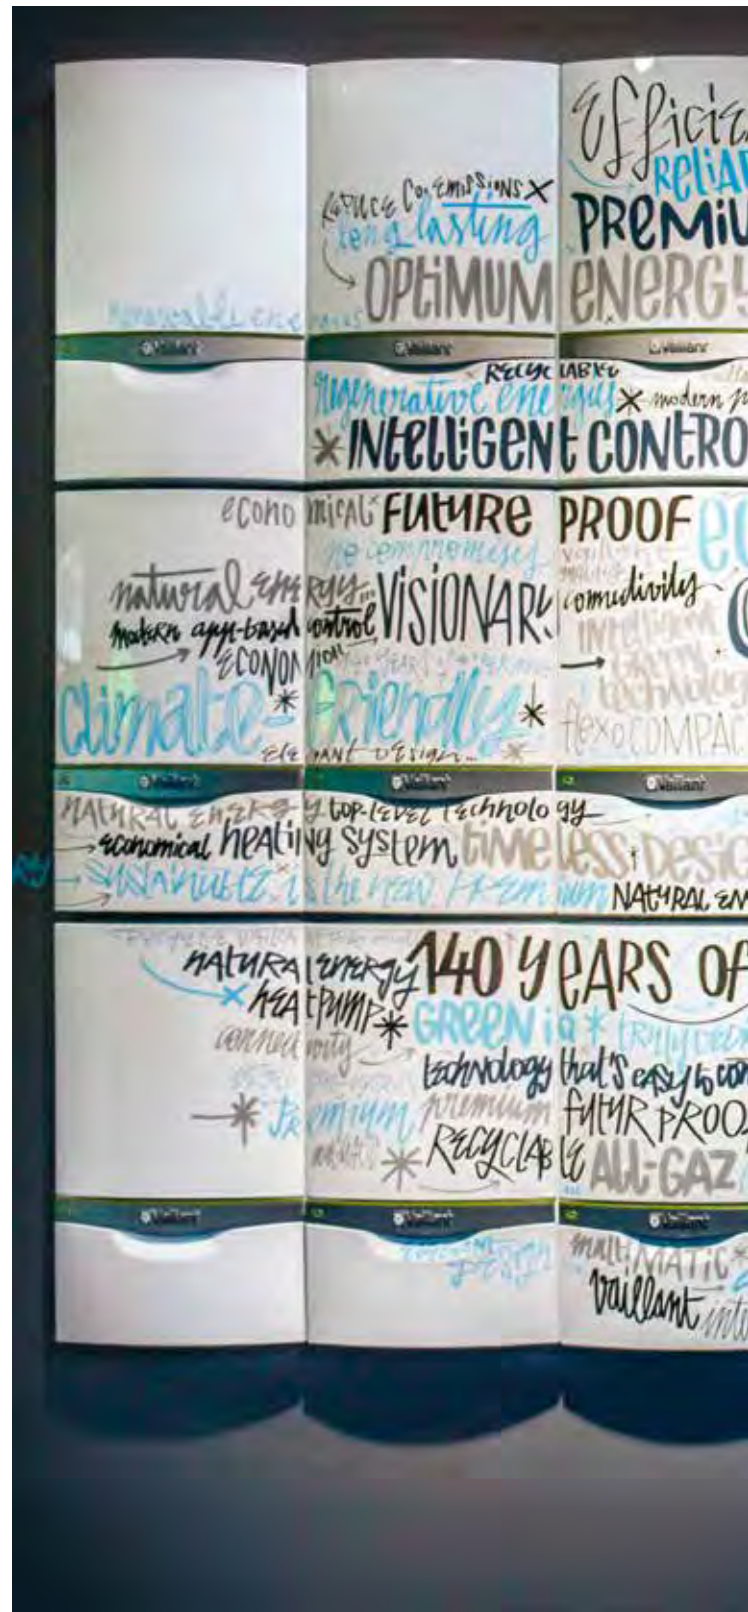 Efficie
RELIAB
REDUCE CO₂ EMISSIONS
long lasting
PREMIU
OPtiMUM
ENERGY
Renewable energies
Vaillant Vaillant Vaillant
RECYCLABLE
regenerative energies modern
INtElliGENt CONtRO
ECONOMICAL FUtURE PROOF
no compromises
natural energy... VISIONARY connectivity
modern app-based control
ECONOMICAL
INTElligent
technolog
Climate-friendly
flexoCOMPAC
ElEGANT DESIGN...
Vaillant Vaillant Vaillant
NATURAL ENERGY top-level technology
economical heating system timeless DESIG
SUSTAINABLE. is the new Premium NATURAL EN
NAtURAL ENERGY 140 YEARS OF
HEAtPUMP GREEN iQ
connectivity
technology that's easy to con
Premium premium FUtUR PROO
RECYCLABLE ALL-GAZ
Vaillant Vaillant Vaillant
multiMATIC
Vaillant inte